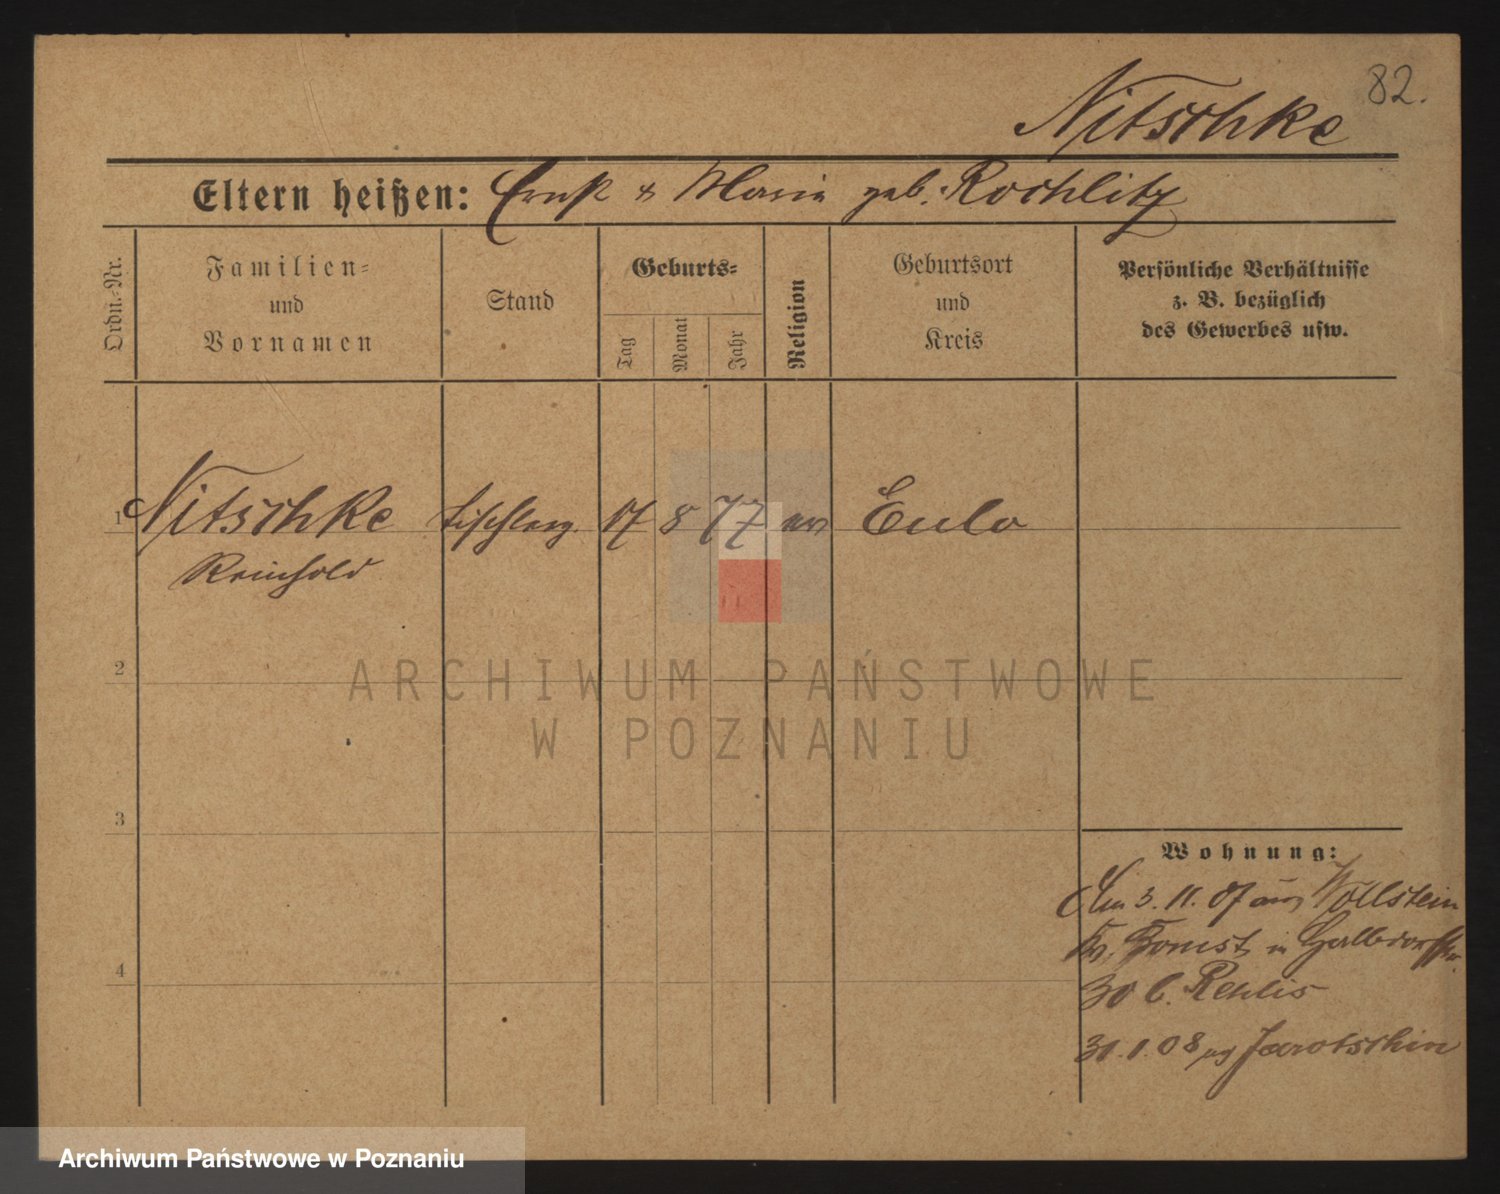 Nitschke 82.
Eltern heißen: Ernst & Marie geb. Rochlitz
Ordn.-Nr.
Familien-
und
Vornamen
Stand
Geburts-
Tag
Monat
Jahr
Religion
Geburtsort
und
Kreis
Persönliche Verhältnisse
z. B. bezüglich
des Gewerbes usw.
1 Nitschke Tischlerg. 17 8 77 ev Eulo
Reinhold
2
ARCHIWUM PAŃSTWOWE
W POZNANIU
3
4
Wohnung:
Am 3. 11. 07 aus Wollstein
Kr. Bomst in
30 b.
31. 1. 08 Jarotschin
Archiwum Państwowe w Poznaniu